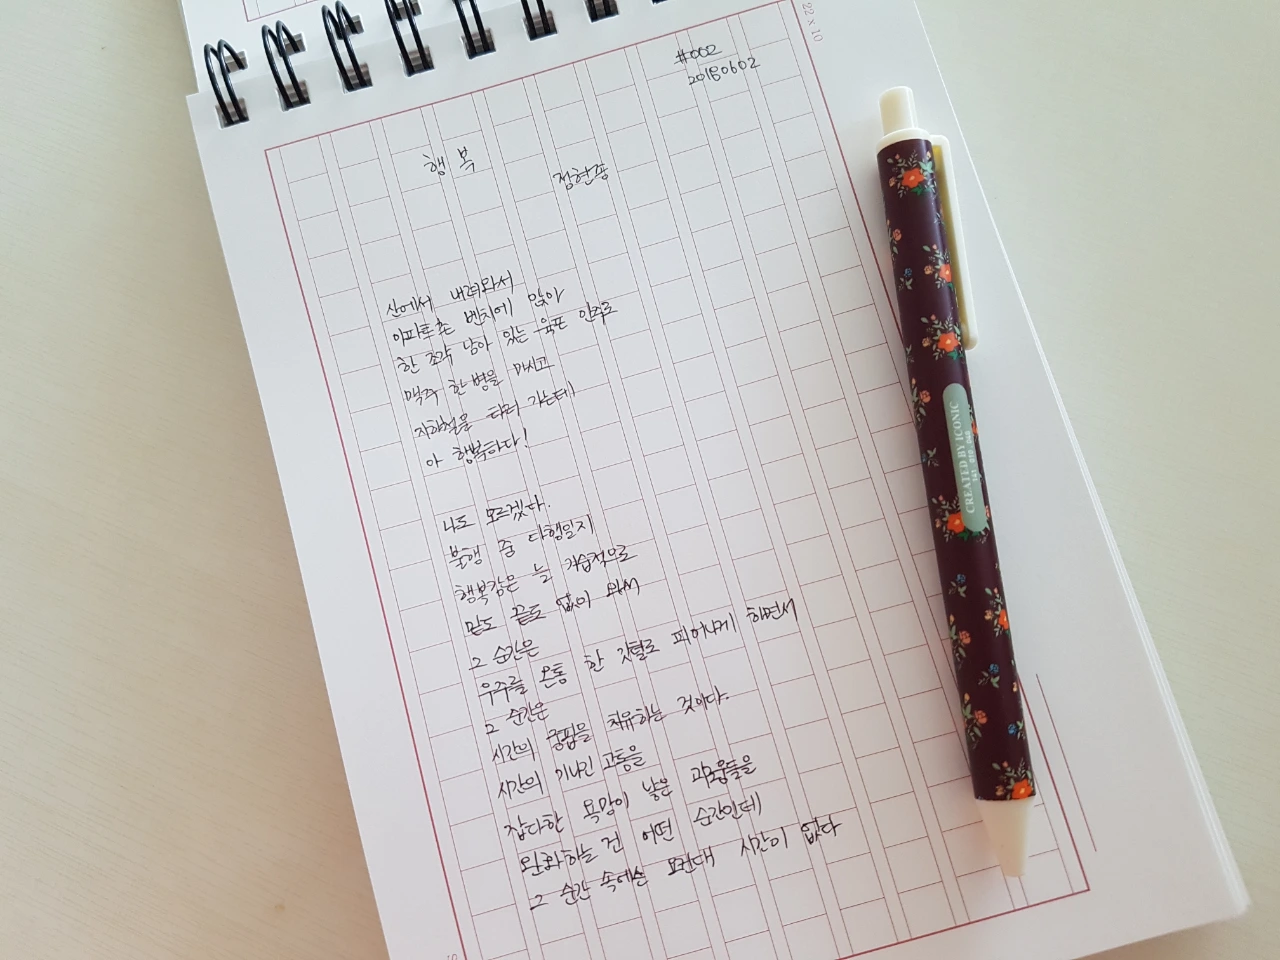 22 x 10
#002
20180602
행복
정현종
산에서 내려와서
아파트촌 벤치에 앉아
한 조각 남아 있는 육포 안주로
맥주 한 병을 마시고
지하철을 타러 가는데
아 행복하다!
나도 모르겠다.
불행 중 다행일지
행복감은 늘 기습적으로
밑도 끝도 없이 와서
그 순간은
우주를 온통 한 깃털로 피어나게 하면서
그 순간은
시간의 궁핍을 치유하는 것이다.
시간의 기나긴 고통을
잡다한 욕망이 낳은 괴로움들을
완화하는 건 어떤 순간인데
그 순간 속에는 요컨대 시간이 없다
CREATED BY ICONIC